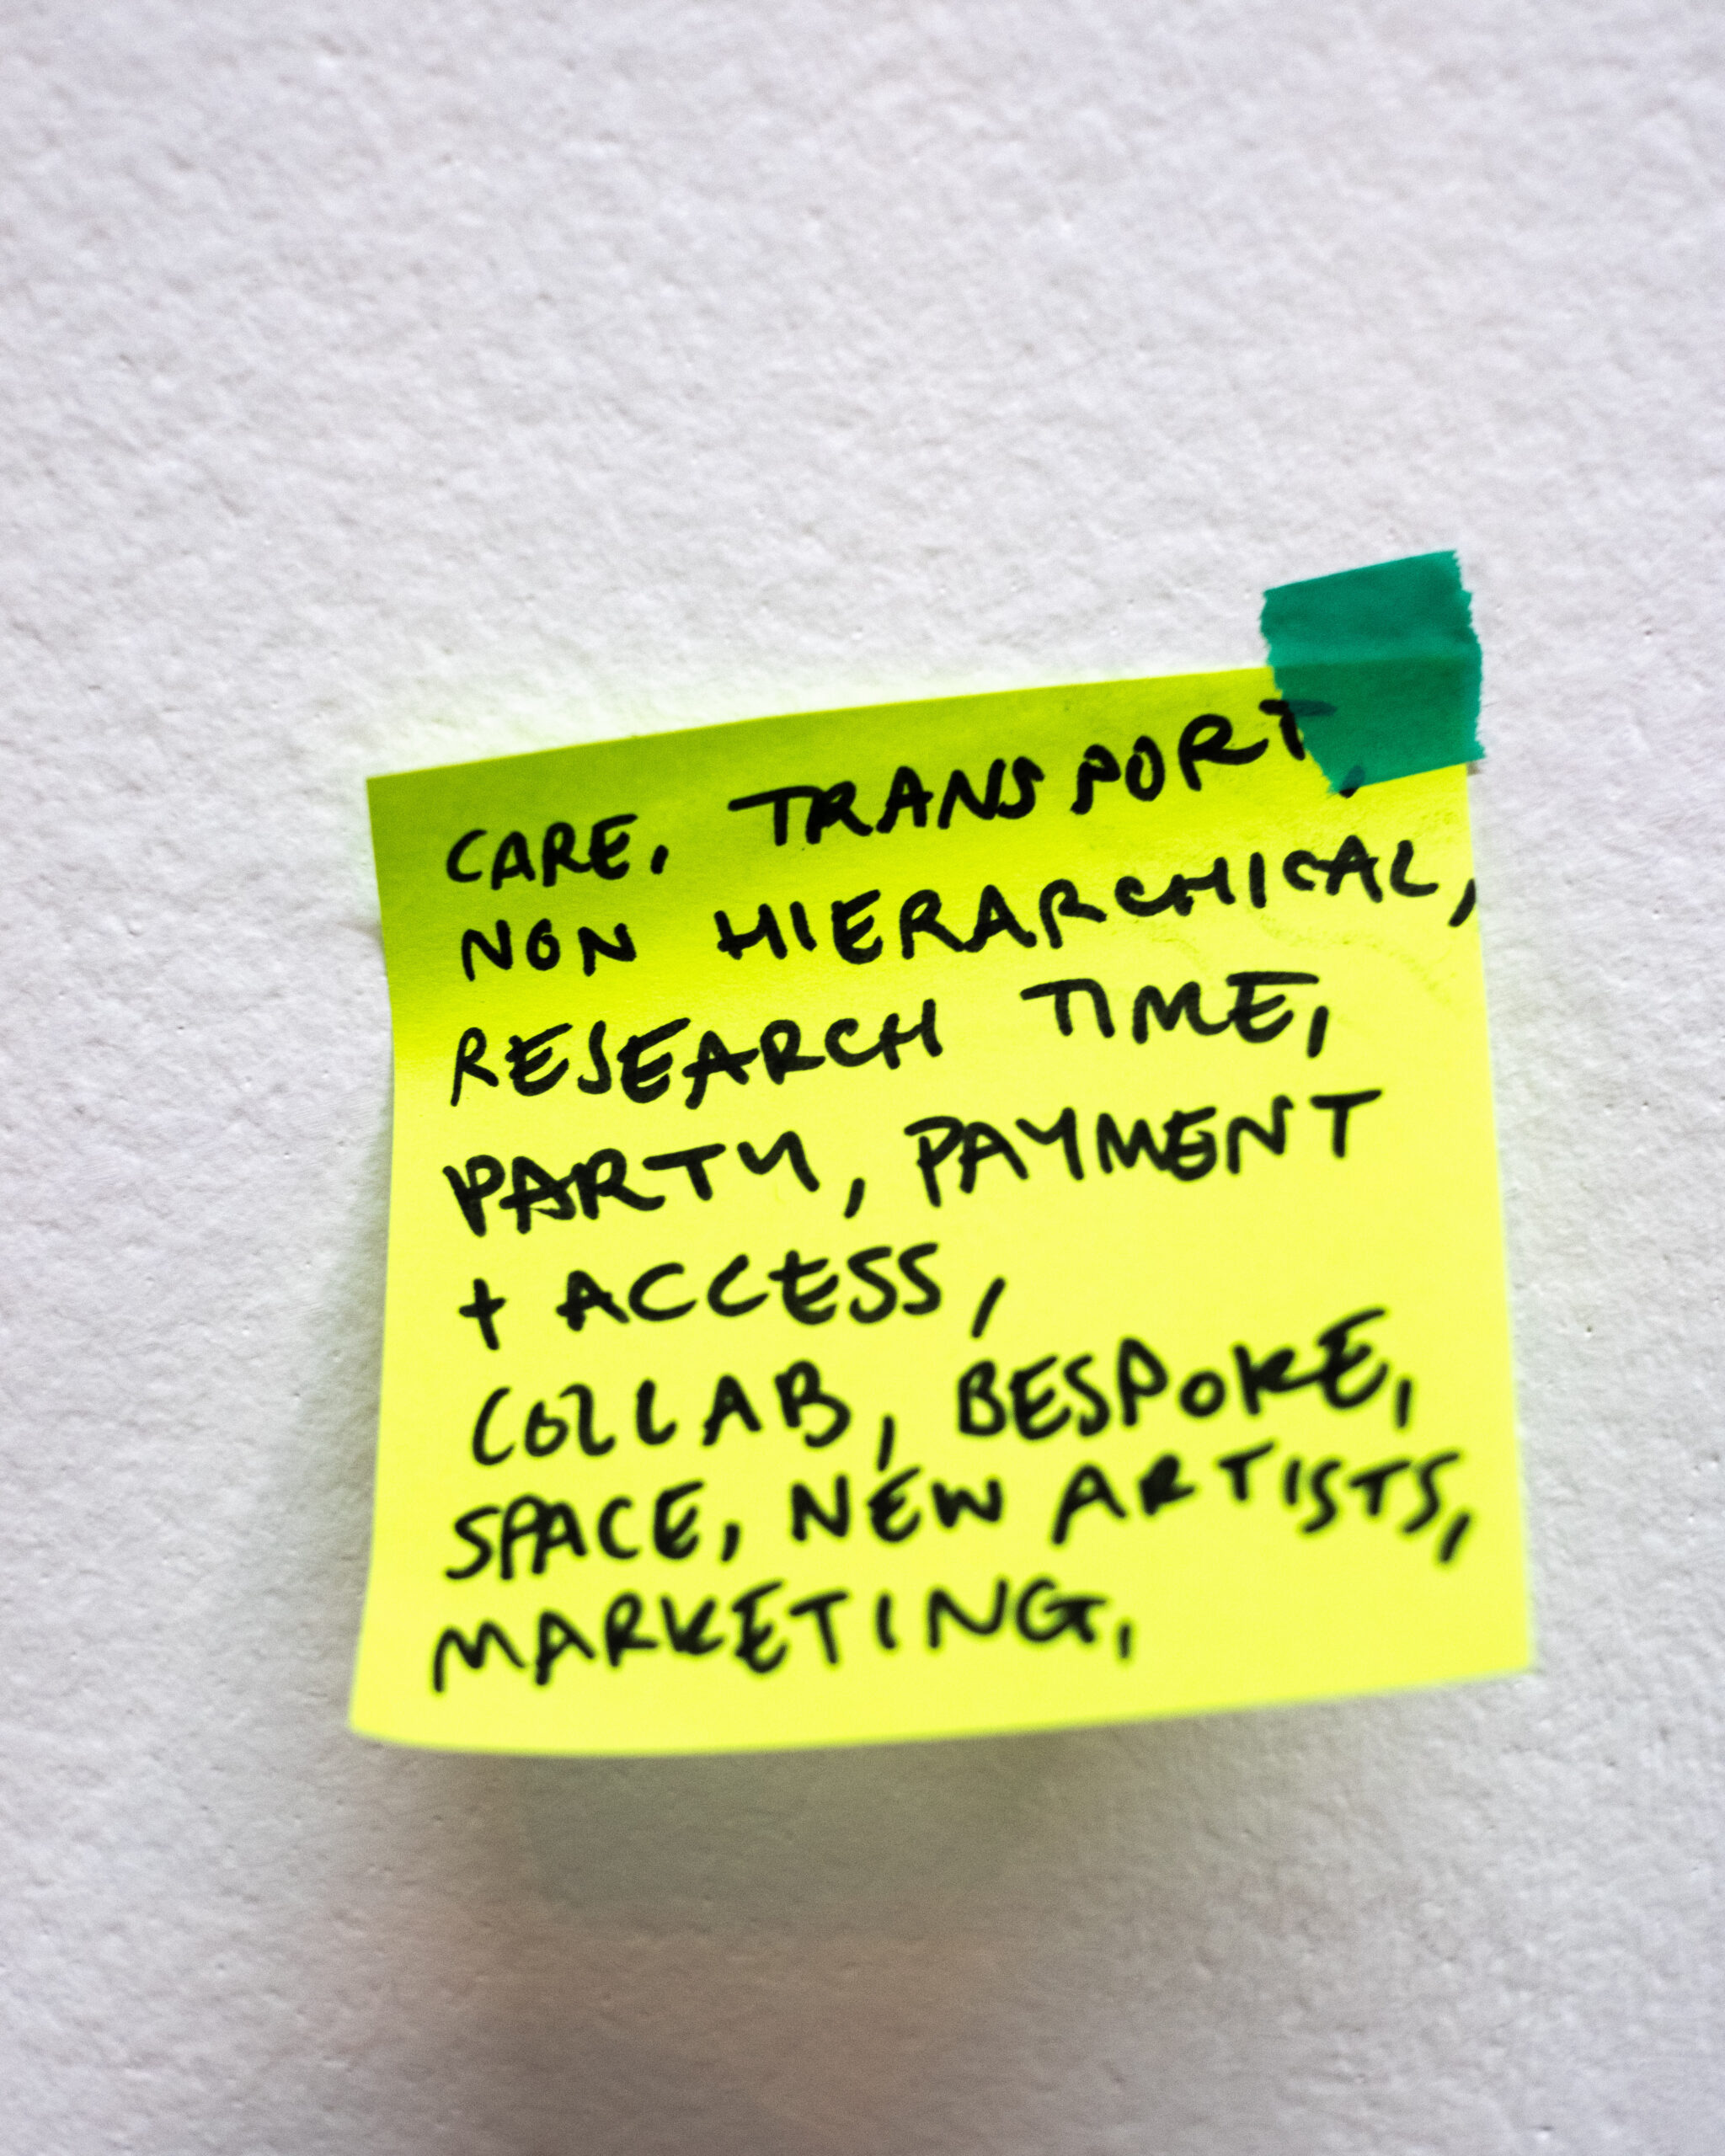 CARE, TRANSPORT,
NON HIERARCHICAL,
RESEARCH TIME,
PARTY, PAYMENT
+ ACCESS,
COLLAB, BESPOKE,
SPACE, NEW ARTISTS,
MARKETING,